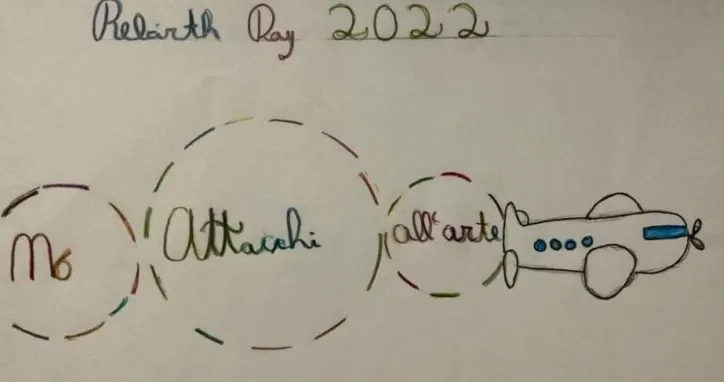 Rebirth Day 2022
No Attacchi all'arte